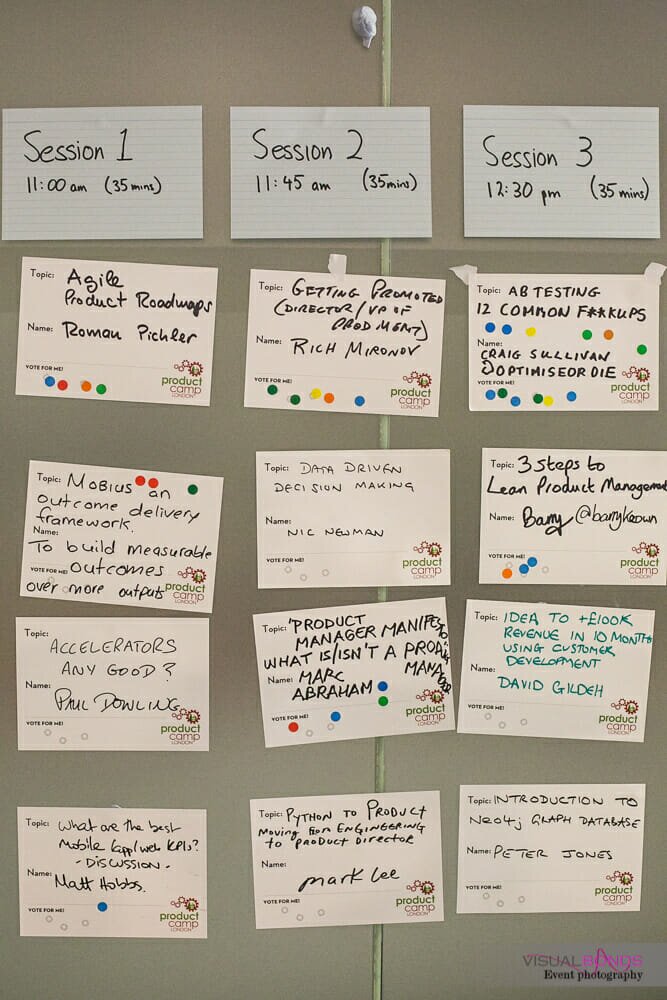 Session 1
11:00 am (35 mins)
Session 2
11:45 am (35mins)
Session 3
12:30 pm (35 mins)
Topic: Agile
Product Roadmaps
Name: Roman Pichler
VOTE FOR ME!
product
camp
LONDON
Topic: GETTING PROMOTED
(DIRECTOR/VP OF
PROD MGMT)
Name: RICH MIRONOV
VOTE FOR ME!
product
camp
LONDON
Topic: AB TESTING
12 COMMON F**KUPS
Name:
CRAIG SULLIVAN
OPTIMISEORDIE
VOTE FOR ME!
product
camp
LONDON
Topic: MOBIUS an
outcome delivery
framework.
Name:
To build measurable
VOTE FOR ME! outcomes
over more outputs
product
camp
LONDON
Topic: DATA DRIVEN
DECISION MAKING
Name:
NIC NEWMAN
VOTE FOR ME!
product
camp
LONDON
Topic: 3 steps to
Lean Product Management
Name: Barry @barrykeown
VOTE FOR ME!
product
camp
LONDON
Topic:
ACCELERATORS
ANY GOOD?
Name:
PAUL DOWLING
VOTE FOR ME!
product
camp
LONDON
Topic: 'PRODUCT
MANAGER MANIFESTO
WHAT IS/ISN'T A PRODUCT
MANAGER
Name: MARC
ABRAHAM
VOTE FOR ME!
product
camp
LONDON
Topic: IDEA TO +£100K
REVENUE IN 10 MONTHS
USING CUSTOMER
DEVELOPMENT
Name: DAVID GILDEH
VOTE FOR ME!
product
camp
LONDON
Topic: What are the best
Mobile (app/web KPIs?
- DISCUSSION -
Name: Matt Hobbs.
VOTE FOR ME!
product
camp
LONDON
Topic: PYTHON TO PRODUCT
MOVING FROM ENGINEERING
TO PRODUCT DIRECTOR
Name:
mark lee
VOTE FOR ME!
product
camp
LONDON
Topic: INTRODUCTION TO
Neo4j GRAPH DATABASE
Name: PETER JONES
VOTE FOR ME!
product
camp
LONDON
VISUALBONDS
Event photography